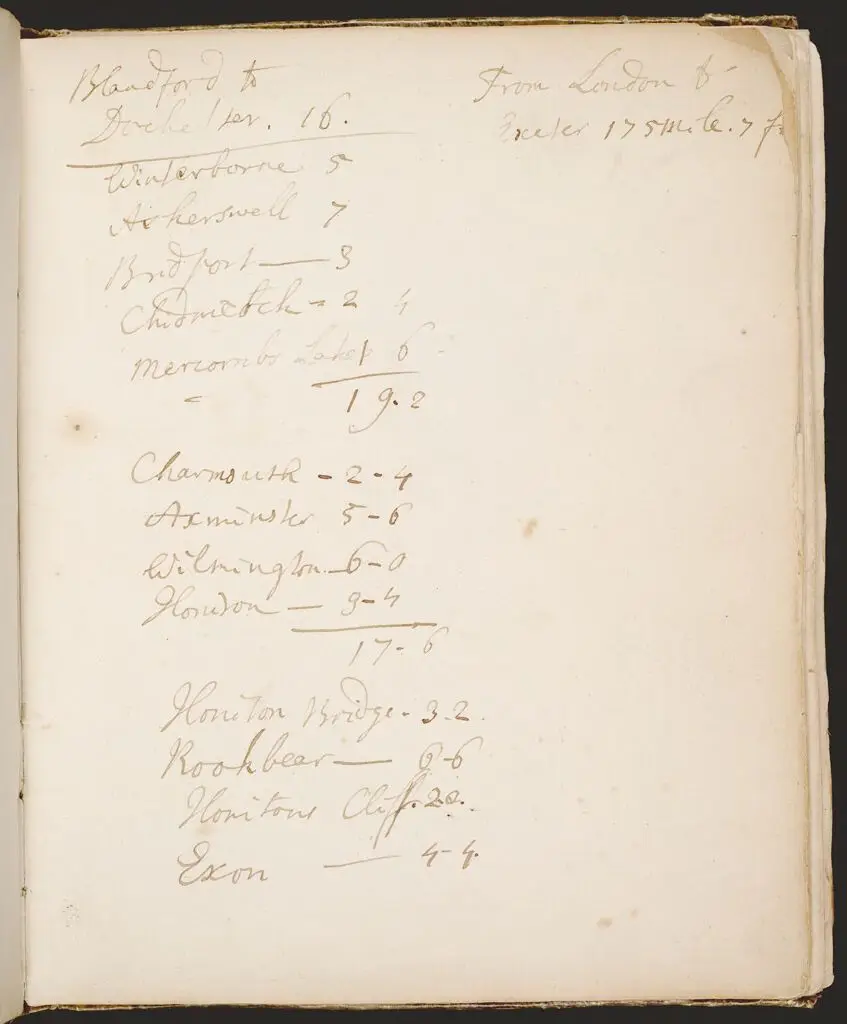 Blandford to
Dochester. 16.
Winterborne 5
Askerswell 7
Bridport — 3
Chidmetck - 2 4
Mercombs Lake 1 6
19.2
Charmouth - 2 - 4
Axminster 5 - 6
Wilmington - 6 - 0
Honiton — 3 - 4
17 - 6
Honiton Bridge - 3 - 2.
Rookbeer — 6 - 6
Honitons Cliff. 2 2.
Exon — 4 - 4.
From London to
Exeter 175 Mile. 7 f